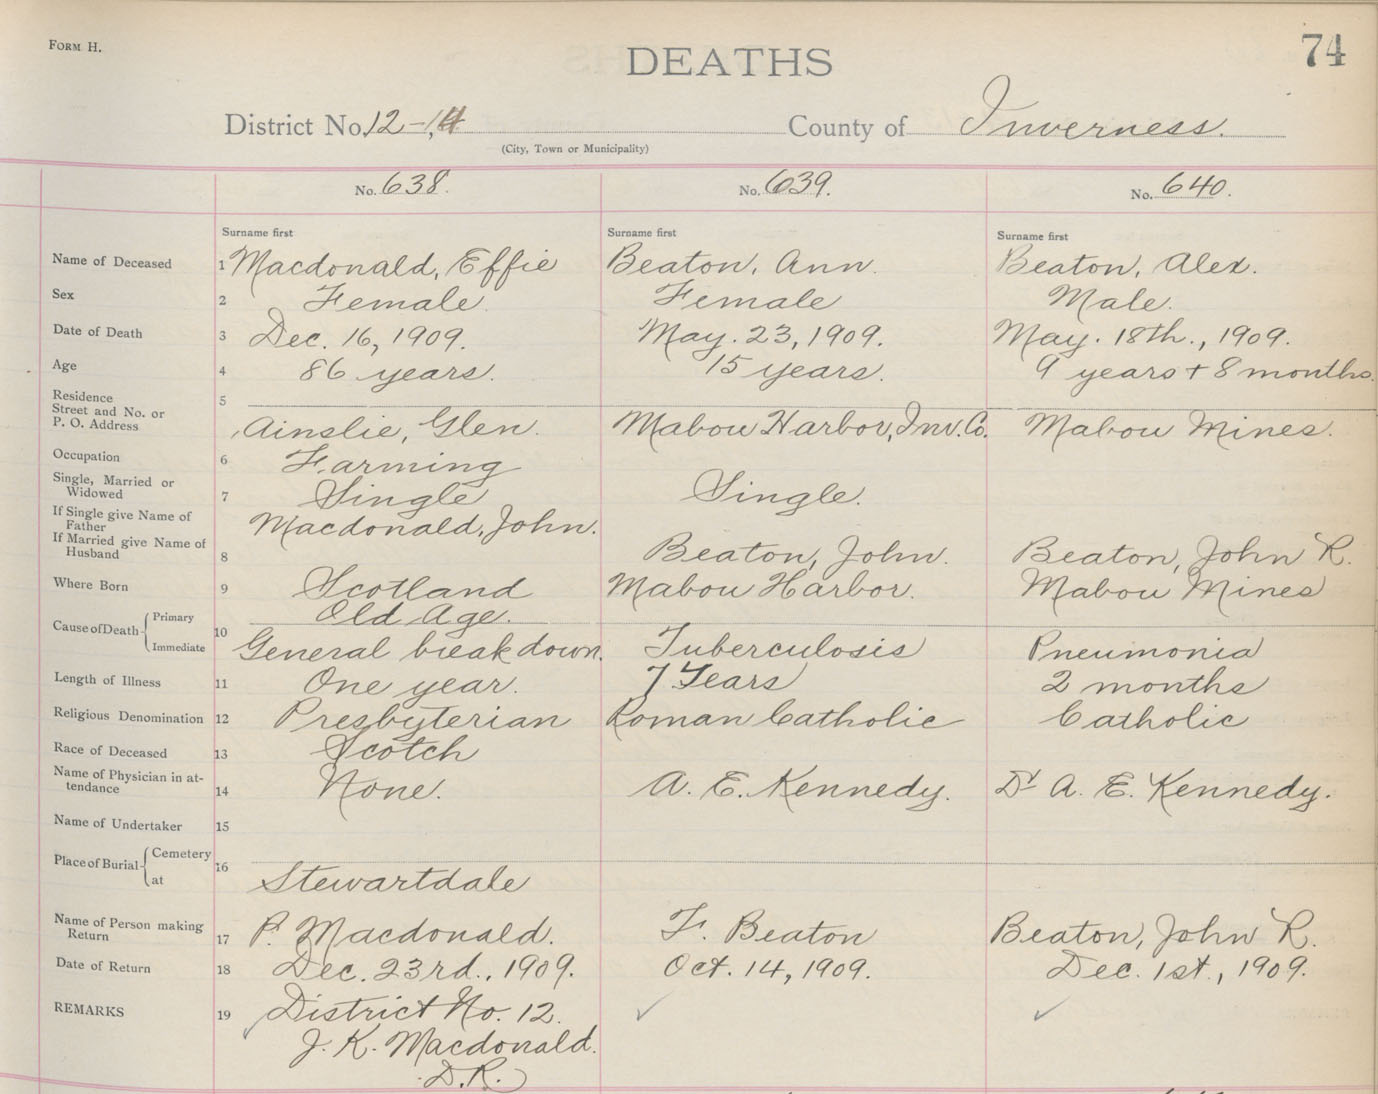 FORM H.
DEATHS
74
District No. 12-14
County of Inverness.
(City, Town or Municipality)
No. 638.
No. 639.
No. 640.
Surname first
Surname first
Surname first
Name of Deceased 1 Macdonald, Effie Beaton, Ann. Beaton, Alex.
Sex 2 Female Female Male.
Date of Death 3 Dec. 16, 1909. May. 23, 1909. May. 18th., 1909.
Age 4 86 years. 15 years. 9 years + 8 months.
Residence
Street and No. or 5
P. O. Address Ainslie, Glen. Mabou Harbor, Inv. Co. Mabou Mines.
Occupation 6 Farming
Single, Married or
Widowed 7 Single Single.
If Single give Name of
Father Macdonald, John.
If Married give Name of
Husband 8 Beaton, John. Beaton, John R.
Where Born 9 Scotland Mabou Harbor. Mabou Mines
Cause of Death Primary 10 Old Age.
Immediate General break down. Tuberculosis Pneumonia
Length of Illness 11 One year. 7 Years 2 months
Religious Denomination 12 Presbyterian Roman Catholic Catholic
Race of Deceased 13 Scotch
Name of Physician in at-
tendance 14 None. A. E. Kennedy. Dr A. E. Kennedy.
Name of Undertaker 15
Place of Burial Cemetery 16
at Stewartdale
Name of Person making
Return 17 P. Macdonald. F. Beaton Beaton, John R.
Date of Return 18 Dec. 23rd., 1909. Oct. 14, 1909. Dec. 1st., 1909.
REMARKS 19 District No. 12.
J. K. Macdonald.
D.R.